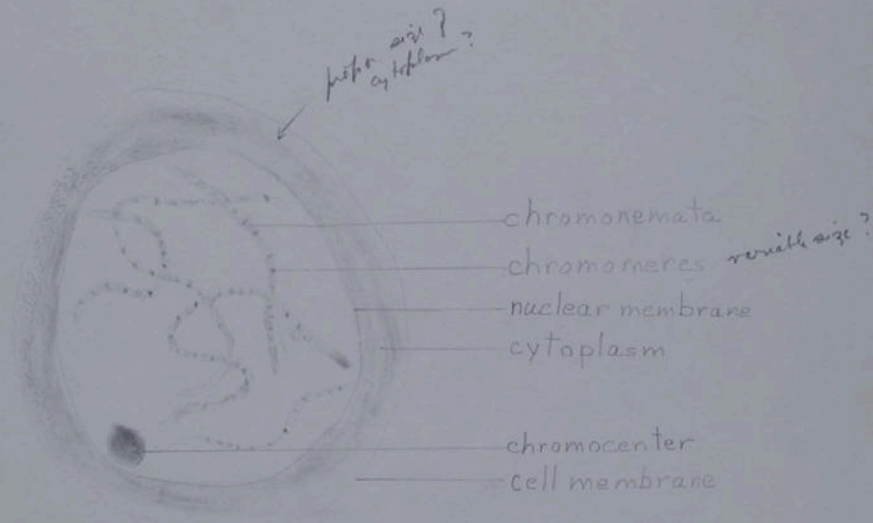 propor size?
cytoplasm?
chromonemata
chromomeres variable size?
nuclear membrane
cytoplasm
chromocenter
cell membrane